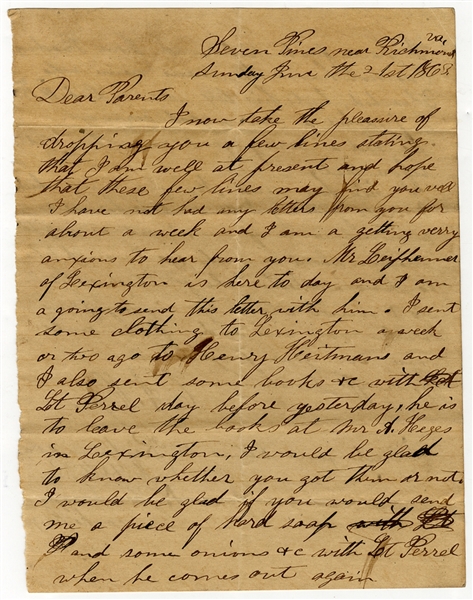 Seven Pines near Richmond Va,
Sunday June the 21st 1863
Dear Parents
I now take the pleasure of
dropping you a few lines stating
that I am well at present and hope
that these few lines may find you well
I have not had my letters from you for
about a week and I am a getting verry
anxios to hear from you. Mr
of Lexington is here to day and I am
a going to send this letter with him. I sent
some clothing to Lexington a week
or two ago to Henry Heitmans and
I also sent some books & c with
Lt Perrel day before yesterday, he is
to leave the books at Mr A. Heges
in Lexington, I would be glad
to know whether you got them or not.
I would be glad if you would send
me a piece of hard soap with Lt
P and some onions & c with Lt Perrel
when he comes out again